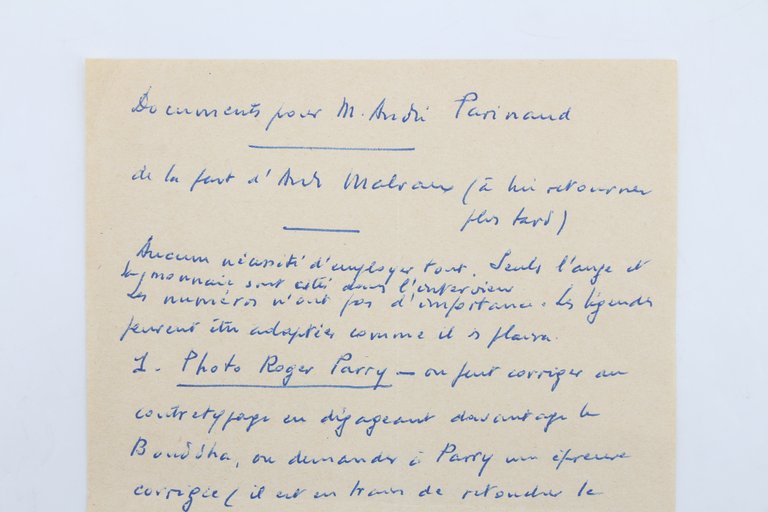 Documents pour M. André Parinaud
de la part d'André Malraux (à lui retourner
plus tard)
Aucune nécessité d'employer tout. Seuls l'ange et
la monnaie sont cités dans l'interview
Les numéros n'ont pas d'importance. Les légendes
peuvent être adaptées comme il plaira.
1. Photo Roger Parry — on peut corriger au
contretypage en dégageant davantage le
Bouddha, ou demander à Parry une épreuve
corrigée (il est en train de retoucher le